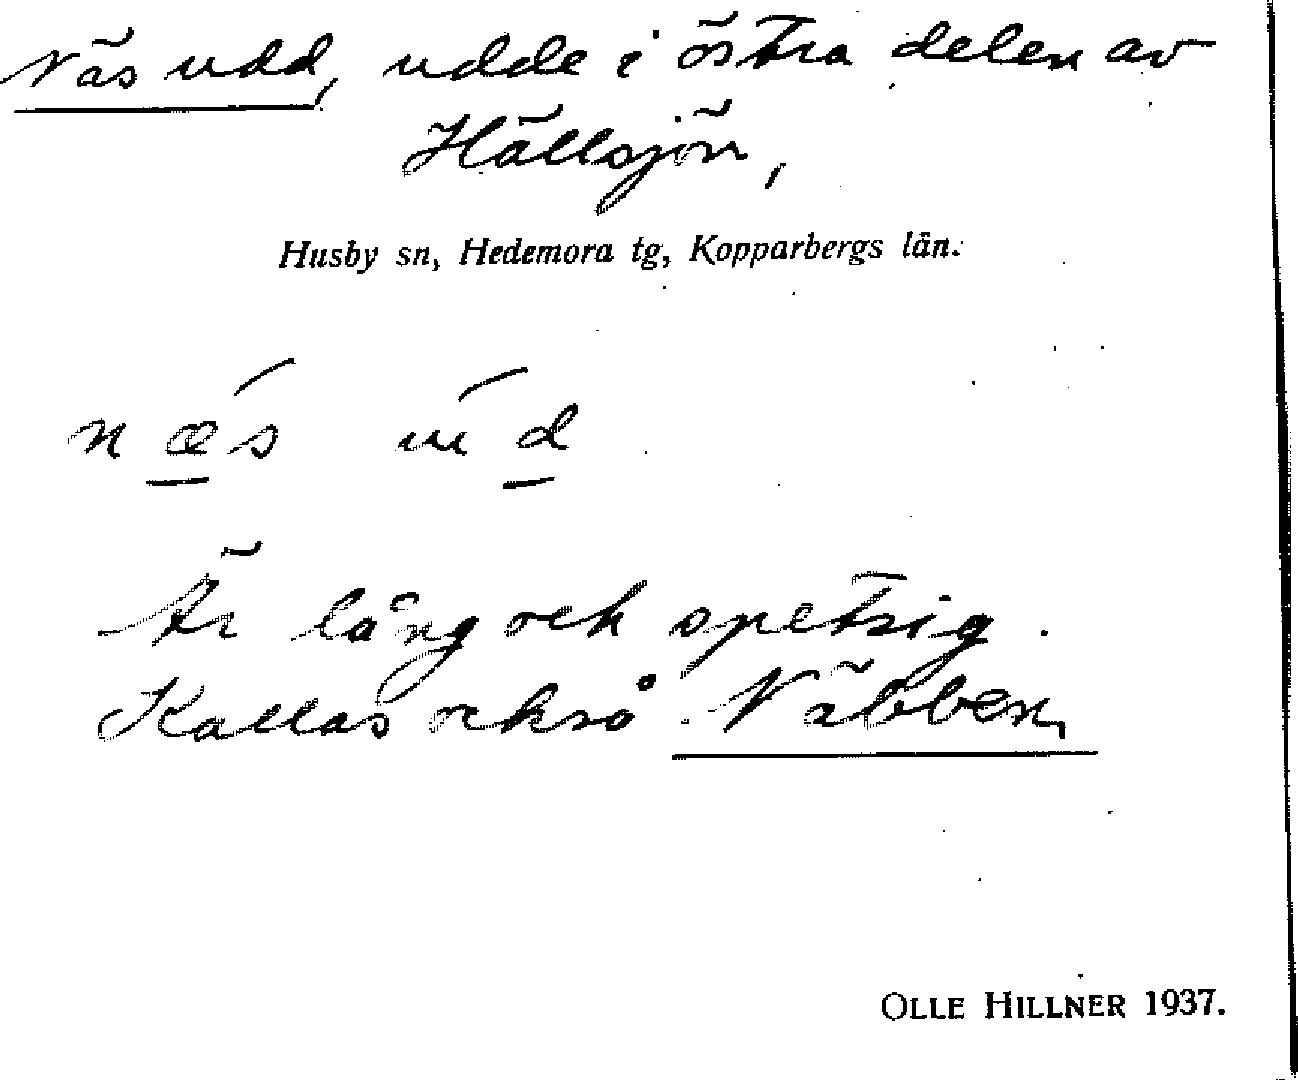 Näs udd, udde i östra delen av
Hällsjön,
Husby sn, Hedemora tg, Kopparbergs län.
næ´s u´d
Är lång och spetsig.
Kallas också Näbben,
OLLE HILLNER 1937.